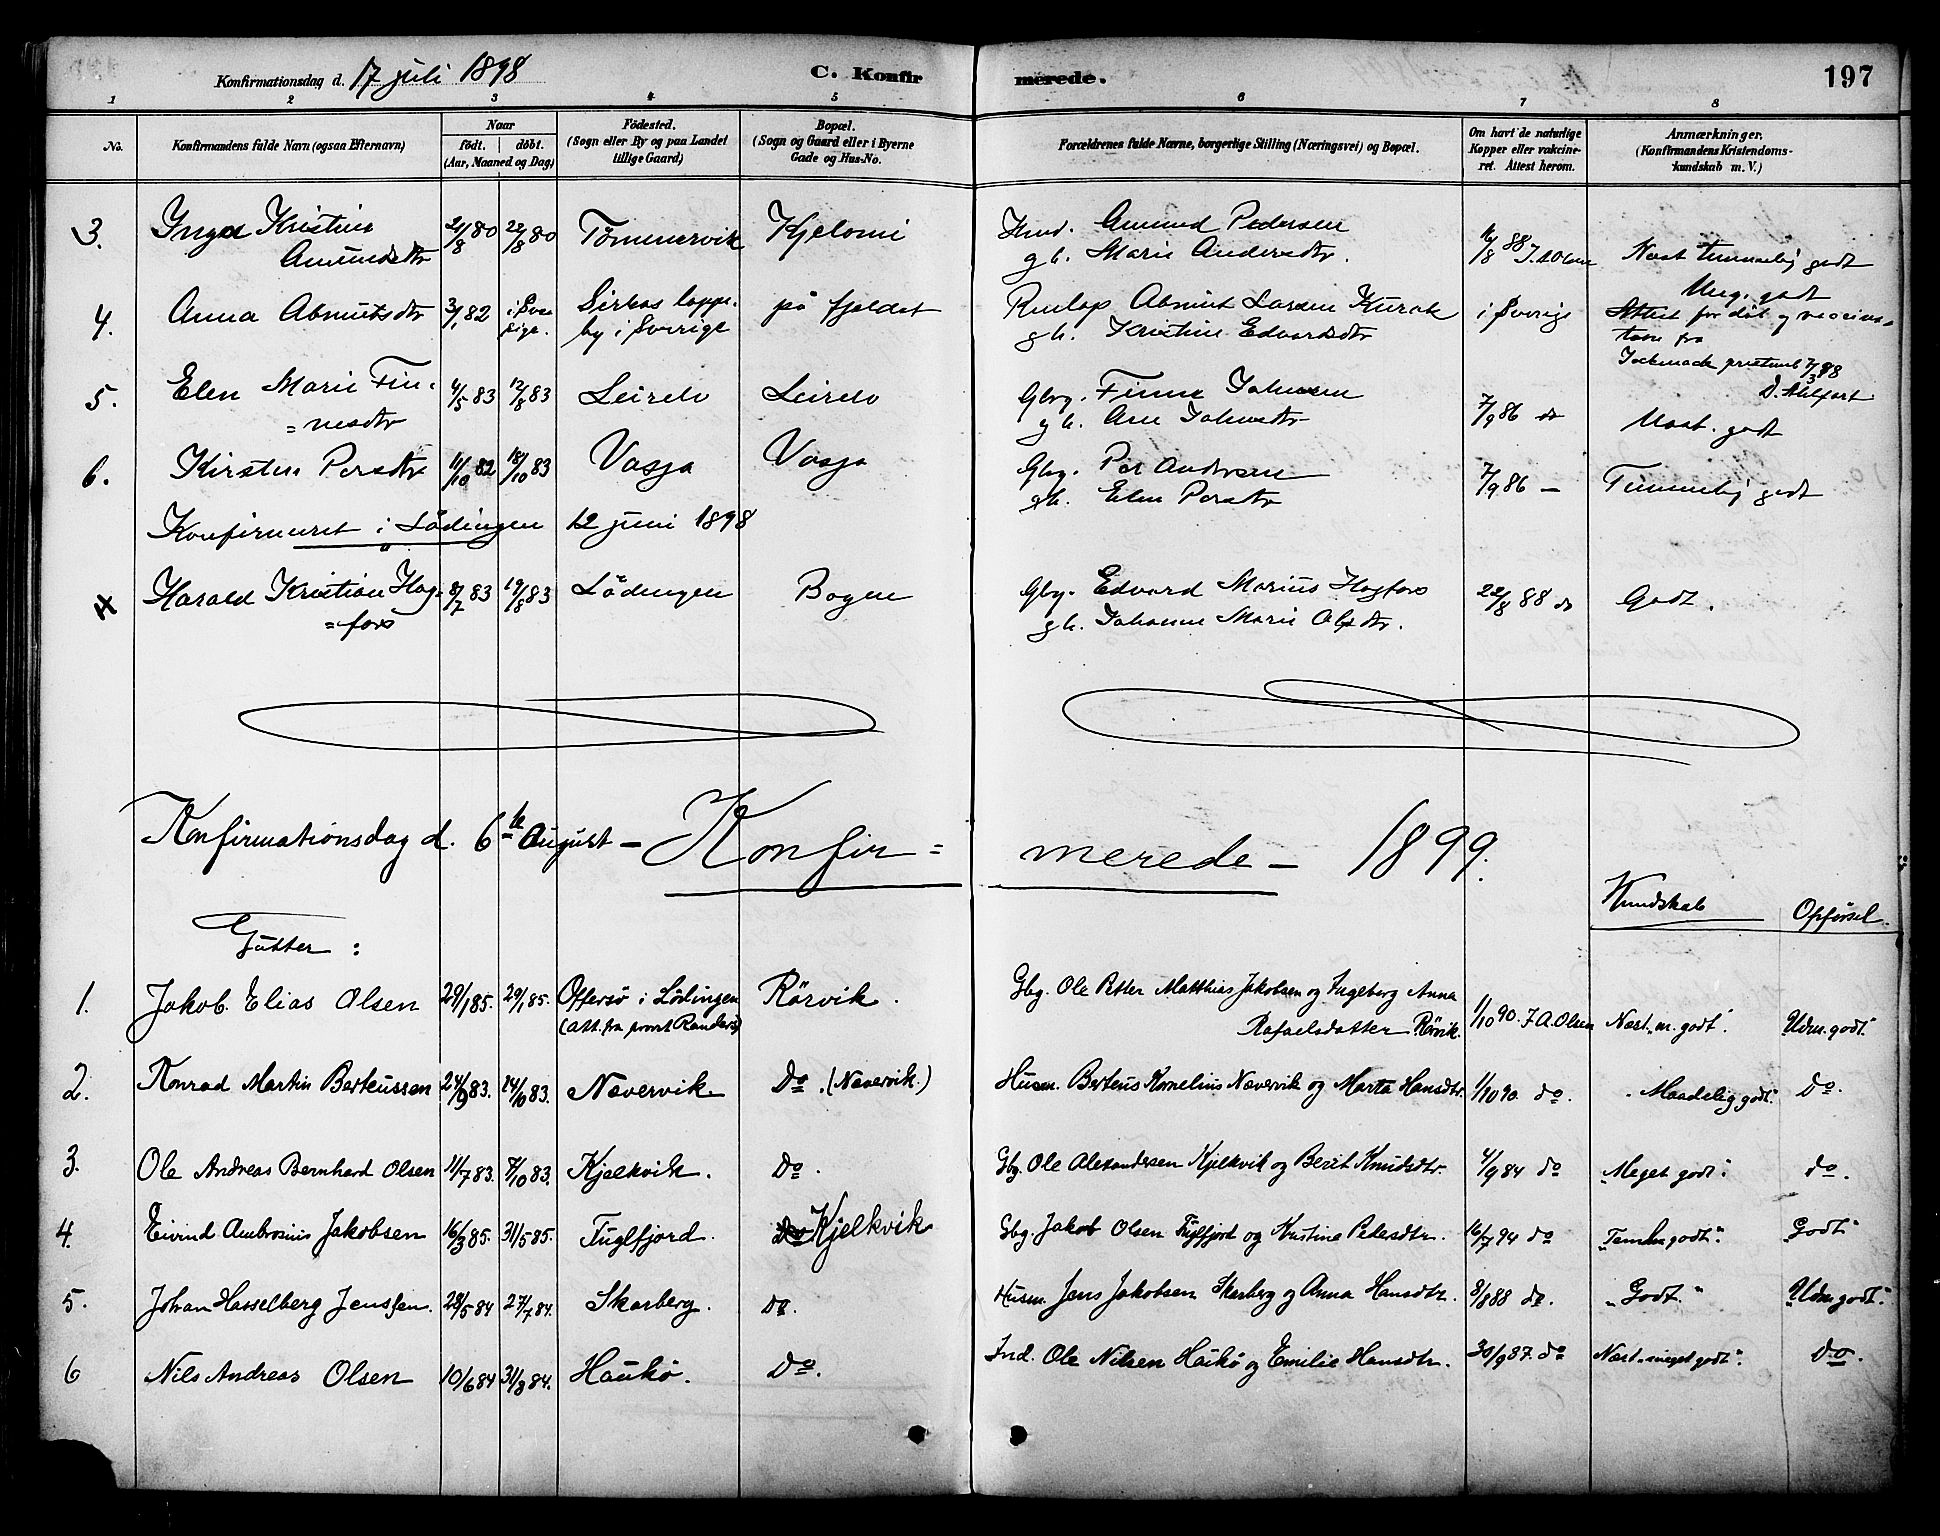 Konfirmationsdag d. 17 juli 1898 C. Konfirmerede. 197
1 2 3 4 5 6 7 8
No. Konfirmandens fulde Navn (ogsaa Efternavn) Naar født. døbt. (Aar, Maaned og Dag) Fødested. (Sogn eller By og paa Landet tillige Gaard) Bopæl. (Sogn og Gaard eller i Byerne Gade og Hus-No. Forældrenes fulde Navne, borgerlige Stilling (Næringsvei) og Bopæl. Om havt de naturlige Kopper eller vakcineret. Attest herom. Anmærkninger. (Konfirmandens Kristendomskundskab m. V.)
3. Inga Kristine Amundsdtr 21/8 80 22/8 80 Tømmervik Kjelomi Amund Pedersen
g h. Marie Andersdtr. 16/8 88 J. A Olsen Næst temmelig godt
4. Anna Abmutsdtr 3/1 82 i Sverige. Sirkas lappeby i Sverige på fjeldet Abmut Larsen Kurak
gh. Kristine Edvardsdtr i Sverige Meg. godt
Attest for dåb og vaccination fra
3/98
5. Elen Marie Finnesdtr 4/5 83 12/8 83 Leirelv Leirelv Gbg. Finne Johnsen
g h. Ane Johnsdtr 7/9 86 do godt
6. Kirsten Persdtr 11/10 82 18/10 83 Vasja Vasja Gbg. Per Andersen
gh. Elen Persdtr 7/9 86 — Temmelig godt
Konfirmeret i Lødingen 12 juni 1898
Harald Kristian Hagfors 8/7 83 19/8 83 Lødingen Bogen Gbg. Edvard Marius Hagfors
gh. Johanne Marie Olsdtr. 22/8 88 do Godt.
Konfirmationsdag d. 6te August — Konfirmerede — 1899.
Kundskab Opførsel.
Gutter :
1. Jakob Elias Olsen 29/1 85. 29/1 85. Offersø i Lødingen Rörvik. Gbg. Ole Petter Matthias Jakobsen og Ingeborg Anna
(att. fra provst Randers) Rafaelsdatter Rørvik. 1/10 90. J A. Olsen Næst „m. godt". „Udm. godt."
2. Konrad Martin Berteussen 24/9 83. 14/10 83. Nævervik Do. (Nævervik.) Husm. Berteus Kornelius Nævervik og Marta Hansdtr. 1/10 90. do. „Maadelig godt." do.
3. Ole Andreas Bernhard Olsen 11/7 83. 7/10 83. Kjelkvik. Do. Gbg. Ole Alexandersen Kjelkvik og Berit Knudsdtr. 4/9 84 do „Meget godt". do.
4. Eivind Ambrosius Jakobsen 16/3 85. 31/5 85. Fuglfjord. Kjelkvik Gbg. Jakob Olsen Fuglfjord og Kristine Pedersdtr. 16/7 94 do „Temm godt". „Godt"
5. Johan Hasselberg Jenssen. 28/5 84 27/7 84. Skarberg. do. Husm. Jens Jakobsen Skarberg og Anna Hansdtr. 8/8 88 do. „Godt." „Udm godt."
6 Nils Andreas Olsen 10/6 84 31/8 84. Haukø. Do. Ind. Ole Nilsen Haukø og Emilie Hansdtr. 30/9 87. do Næst „meget godt". do.